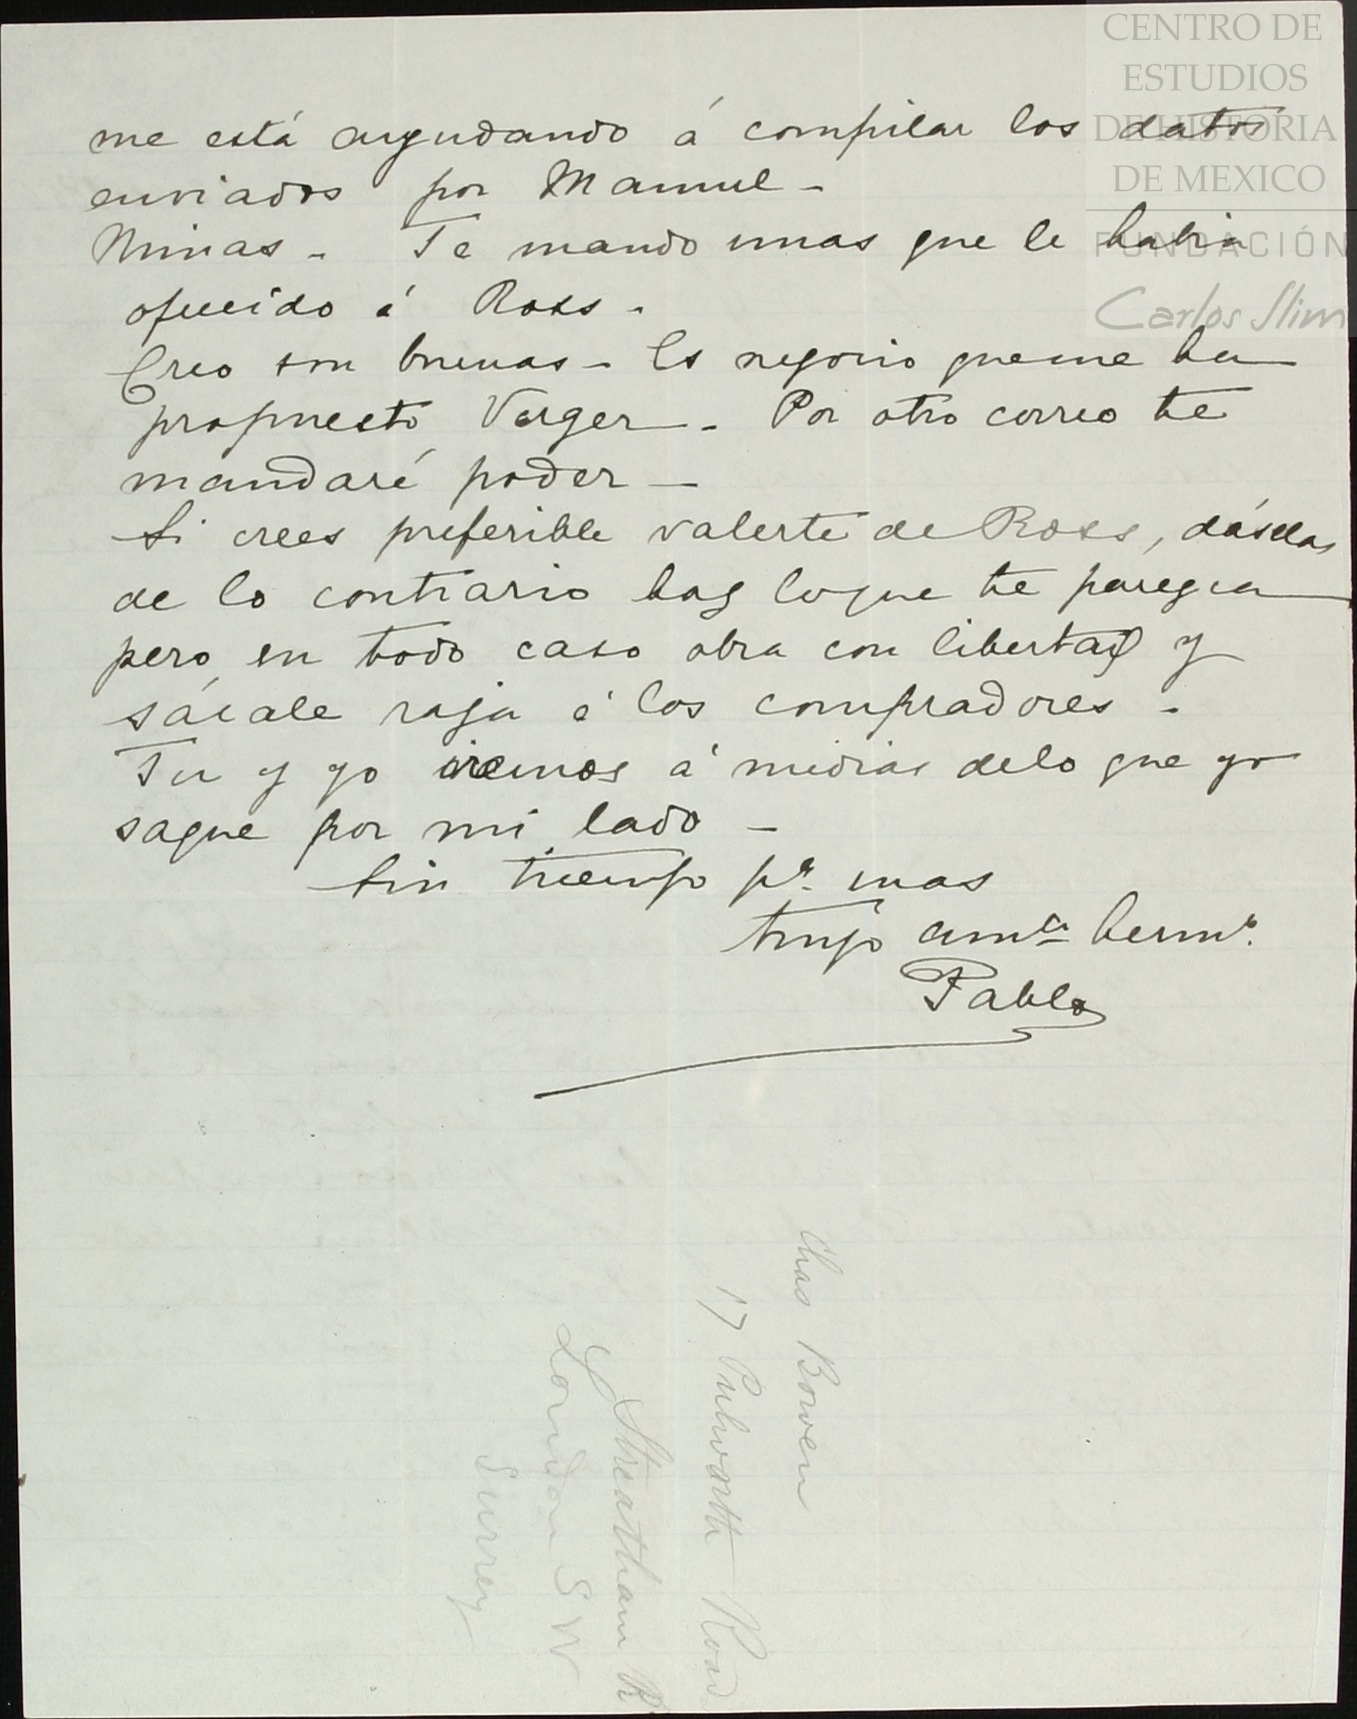 CENTRO DE
ESTUDIOS
DE HISTORIA
DE MEXICO
FUNDACIÓN
Carlos Slim
me está ayudando á compilar los datos
enviados por Manuel -
Minas - Te mando unas que le habia
ofrecido á Ross -
Creo son buenas - Es negocio que me ha
propuesto Verger - Por otro correo te
mandaré poder -
Si crees preferible valerte de Ross, dáselas
de lo contrario haz lo que te parezca
pero en todo caso obra con libertad y
sácale raja á los compradores -
Tu y yo iremos á medias de lo que yo
saque por mi lado -
Sin tiempo pa. mas
tuyo amte hermo.
Pablo
Chas Bowen
17 Pulworth Road
Streatham
London S W
Surrey